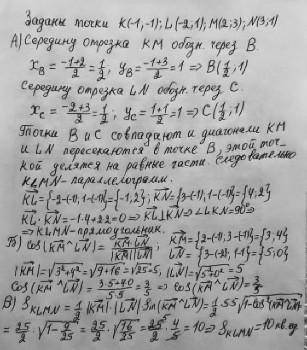 Заданы точки K(-1;-1); L(-2;1) M(2;3); N(3;1)
А) Середину отрезка KM обозн. через B.
x_B = (-1+2)/2 = 1/2; y_B = (-1+3)/2 = 1 ⇒ B(1/2; 1)
Середину отрезка LN обозн. через C.
x_C = (-2+3)/2 = 1/2; y_C = (1+1)/2 = 1 ⇒ C(1/2; 1)
Точки B и C совпадают и диагонали KM
и LN пересекаются в точке B, этой точ-
кой делятся на равные части. Следовательно
KLMN - параллелограмм.
KL = {-2-(-1); 1-(-1)} = {-1; 2}; KN = {3-(-1); 1-(-1)} = {4; 2}
KL · KN = -1·4+2·2 = 0 ⇒ KL ⊥ KN ⇒ ∠LKN = 90° ⇒
⇒ KLMN - прямоугольник.
Б) cos(KM^LN) = KM·LN / |KM||LN|; KM = {2-(-1); 3-(-1)} = {3; 4}
LN = {3-(-2); 1-1} = {5; 0}
|KM| = √3²+4² = √9+16 = √25 = 5; |LN| = √5²+0² = 5
cos(KM^LN) = (3·5+4·0)/(5·5) = 3/5 ⇒ cos(KM^LN) = 3/5
В) S_KLMN = 1/2 |KM||LN| sin(KM^LN) = 1/2 · 5·5 √1-cos²(KM^LN) =
= 25/2 · √1-9/25 = 25/2 · √16/25 = 25/2 · 4/5 = 10 ⇒ S_KLMN = 10 кв. ед